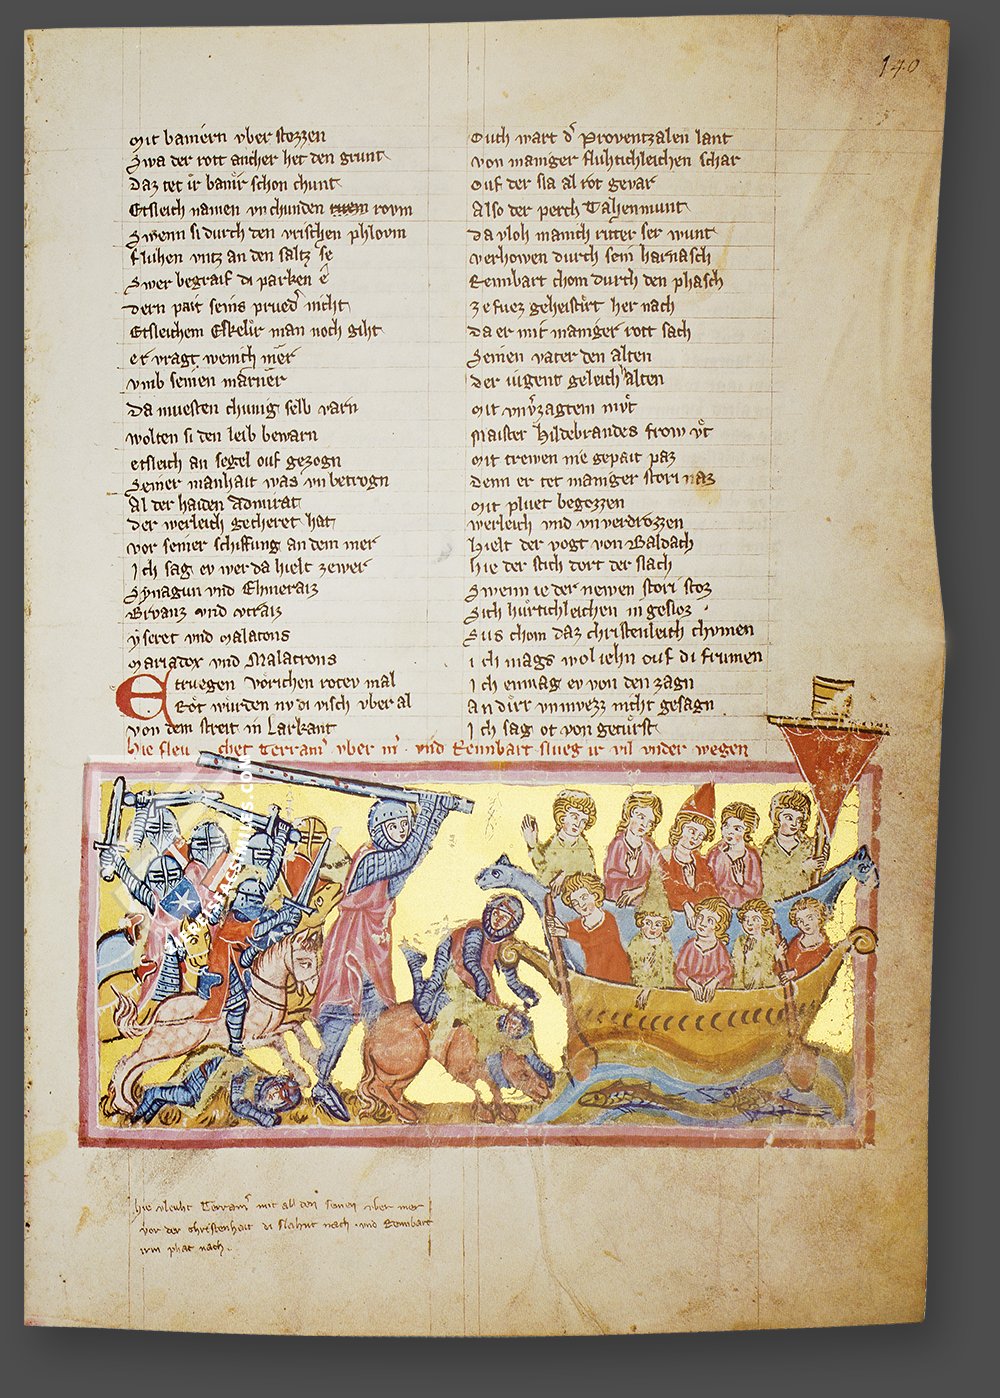 140
mit baniern vber stozzen
Swa der rott ancher het den grunt
Daz tet ir banir schon chunt
Etsleich namen vn chunden rovm
Swenn si durch den vrischen phlovm
fluhen vntz an den saltz se
Swer begraif di parken e
dern pait seins prueder nicht
Etsleichem Eskelir man noch giht
er vragt wenich mer
vmb seinen marner
Da muesten chunig selb varn
wolten si den leib bewarn
etsleich an segel ouf gezogn
Seiner manhait was vn betrogn
Al der haiden Admirat
der werleich gecheret hat
vor seiner schiffung an dem mer
Ich sag ev wer da hielt zewer
Synagun vnd Ehmeraiz
Bruanz vnd vtraiz
yseret vnd Malatons
Mariadox vnd Malacrons
Etruegen vorichen rotev mal
Rot wurden nv di visch vber al
von dem streit in Larkant
Ouch wart der Proventzalen lant
von maniger fluhtichleichen schar
Ouf der sla al rot gevar
Also der perch Tahenmunt
da vloh manich ritter ser wunt
verhowen durch sein harnasch
Rennbart chom durch den phasch
ze fuez geheistirt her nach
da er mit maniger rott sach
Seinen vater den alten
der iugent geleich alten
mit vnverzagtem mut
Maister Hildebrandes frow vt
mit trewen nie gepait paz
denn er tet maniger stori naz
mit pluet begozzen
werleich vnd vnverdrozzen
hielt der vogt von Baldach
hie der stich dort der slach
Swenn ie der newen stori stoz
Sich hurtichleichen in gesloz
Sus chom daz christenleich chvmen
ich mags wol iehn ouf di frumen
Ich enmag ev von den zagn
An dirr vnmvezz nicht gesagn
Ich sag ot von geturst
hie fleu chet Terramer vber mer vnd Rennbart slueg ir vil vnder wegen
ZIEREISFACSIMILES.COM
hie vleuht Terramer mit all den seinen vber mer
vor der christenheit di slahnt nach vnd Rennbart
irm phat nach